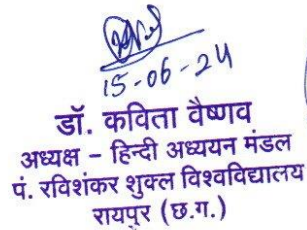 15-06-24
डॉ. कविता वैष्णव
अध्यक्ष – हिन्दी अध्ययन मंडल
पं. रविशंकर शुक्ल विश्वविद्यालय
रायपुर (छ.ग.)